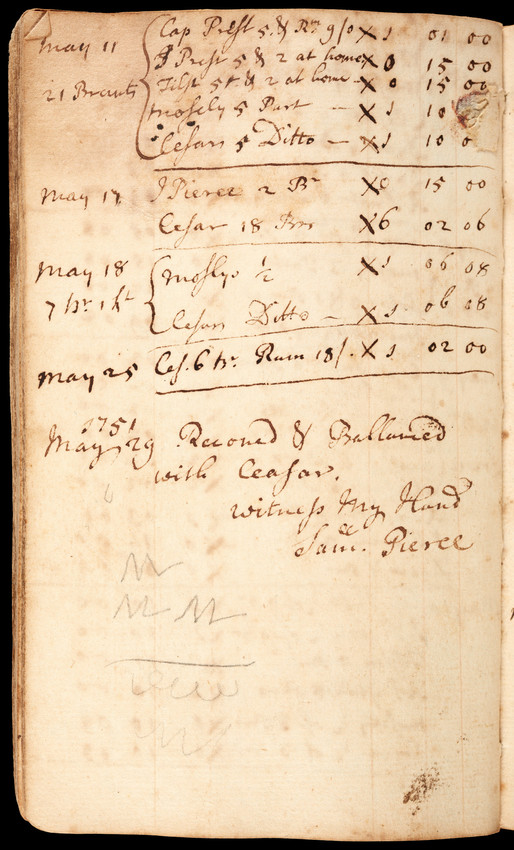 Cap Prest 5 & Rm 9/0 X 1 01 00
May 11 J Prest 5 & 2 at home X 0 15 00
21 Brants Tilst 5 & 2 at home X 0 15 00
mosely 5 Part — X 1 10
Cesar 5 Ditto — X 1 10 0
May 17 J Pierce 2 Br X 0 15 00
Cesar 18 Brs X 6 02 06
May 18 mosly 1/2 X 1 06 08
7 br 1 Cesar Ditto — X 1 06 08
May 25 Ces. 6 br. Rum 18/. X 1 02 00
1751
May 29 Reconed & Ballanced
with Ceasar.
witness My Hand
Sam. Pierce